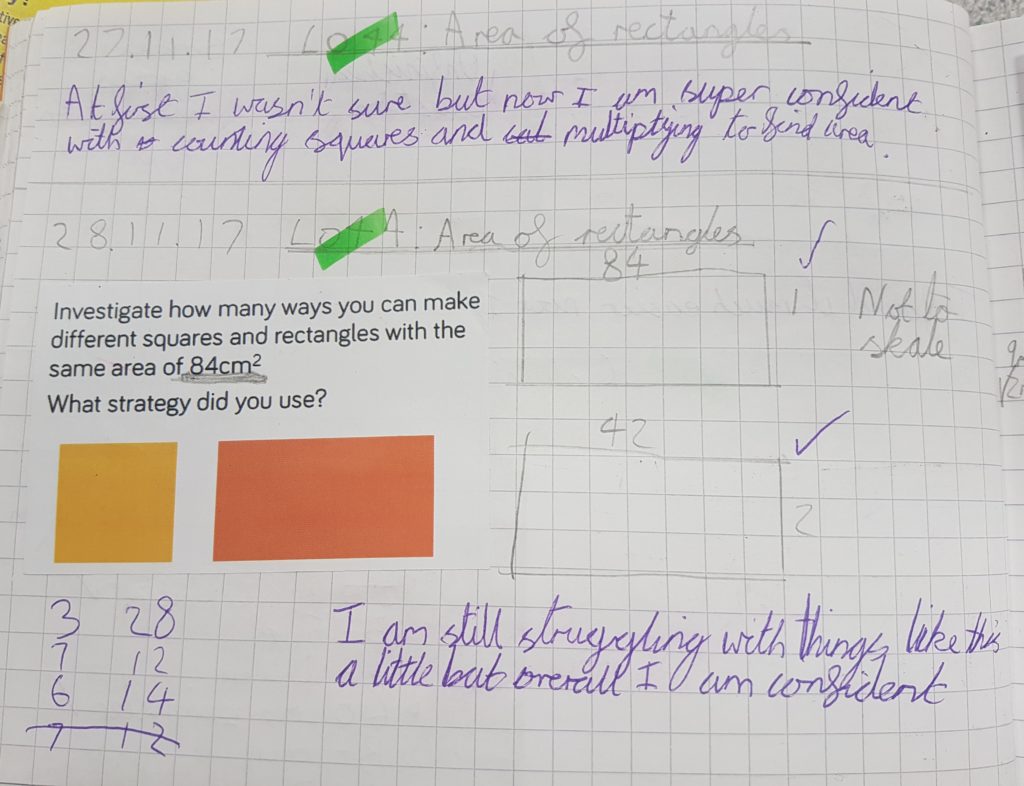 22.11.17 LO : Area of rectangles
At first I wasn't sure but now I am super confident
with counting squares and multiptying to find area.
28.11.17 LO : Area of rectangles
84
1
Not to
skale
Investigate how many ways you can make
different squares and rectangles with the
same area of 84cm²
What strategy did you use?
42
2
3 28
7 12
6 14
7 12
I am still struggling with things like this
a little but overall I am confident